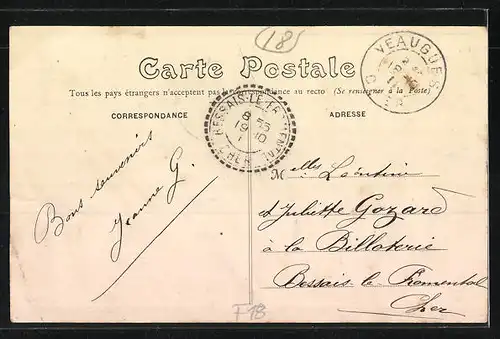 (18)
Carte Postale
Tous les pays étrangers n'acceptent pas la correspondance au recto (Se renseigner à la Poste)
CORRESPONDANCE
ADRESSE
VEAUGUES
CHER
BESSAIS-LE-FROMENTAL
CHER
Bons souvenirs
Jeanne G.
Melles Léontine
et Juliette Gozard
à la Billoterie
Bessais le Fromental
Cher
F18